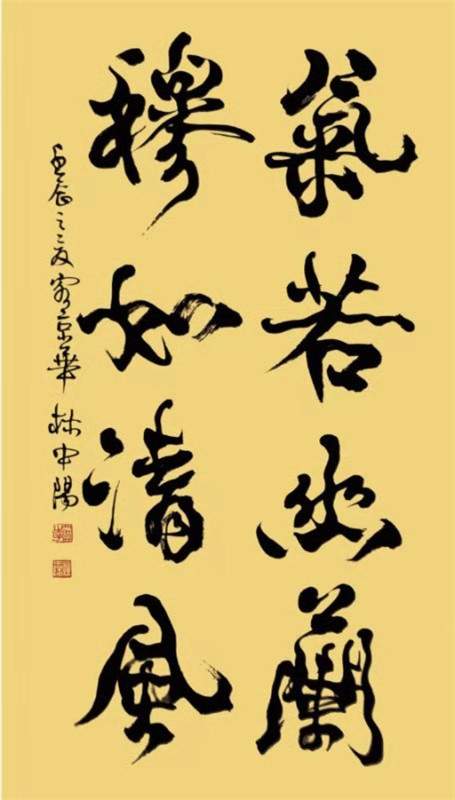 氣若幽蘭
穆如清風
壬辰之夏客京華林中陽